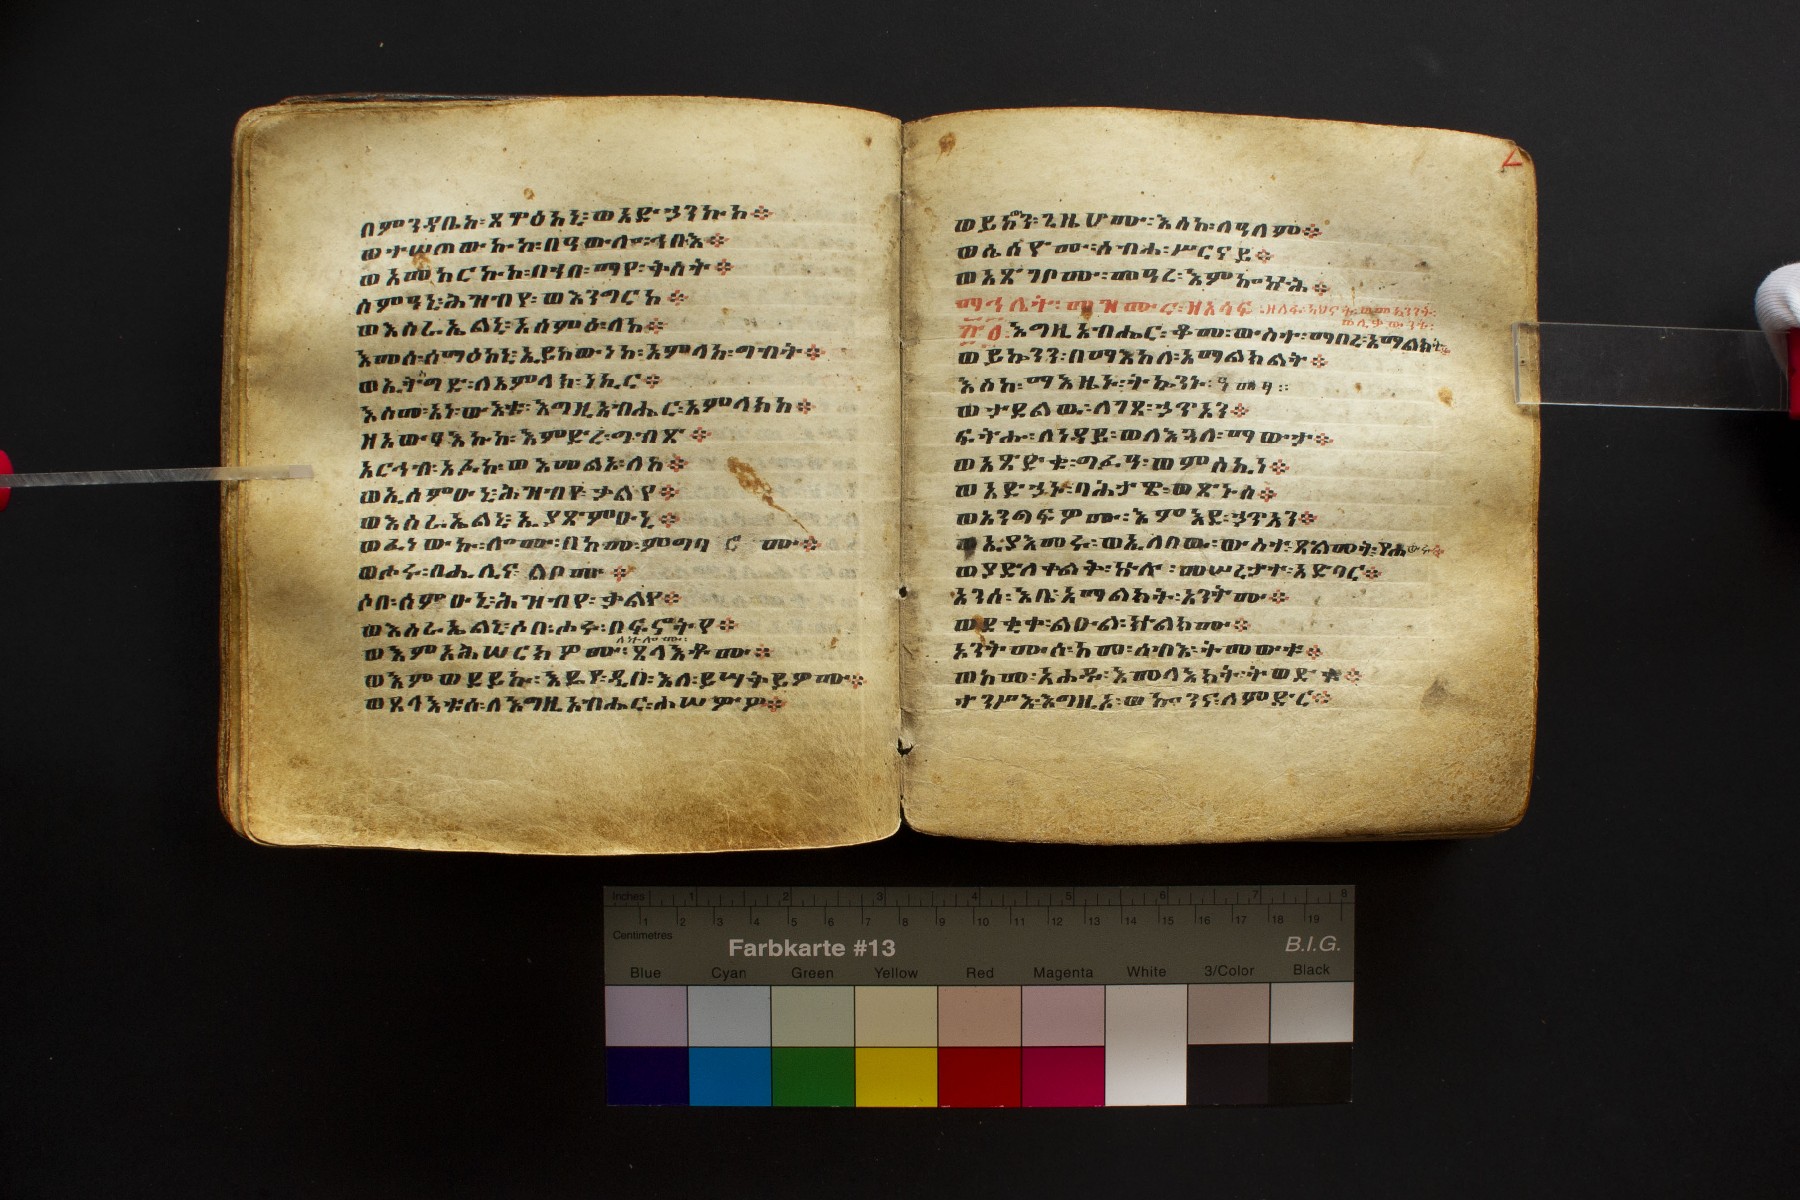 በምንዳቤከ፡ ጸዋዕከኒ፡ ወአድኃንኩከ፨
ወተሠጠውኩከ፡ በዓውሎ፡ ኅቡእ፨
ወአመከርኩከ፡ በኀበ፡ ማየ፡ ትስት፨
ስምዓኒ፡ ሕዝብየ፡ ወእንግርከ፨
ወእስራኤልኒ፡ አሰምዕ፡ ለከ፨
እመሰ፡ ሰማዕከኒ፡ ኢይከውነከ፡ አምላከ፡ ግብት፨
ወኢትግድ፡ ለአምላክ፡ ነኪር፨
እስመ፡ አነ፡ ውእቱ፡ እግዚአብሔር፡ አምላክከ፨
ዘአውፃእኩከ፡ እምድረ፡ ግብጽ፨
አርኅብ፡ አፉከ፡ ወእመልኦ፡ ለከ፨
ወኢሰምዑኒ፡ ሕዝብየ፡ ቃልየ፨
ወእስራኤልኒ፡ ኢያጽምዑኒ፨
ወፈነውኩ፡ ሎሙ፡ በከመ፡ ምግባሮሙ፨
ወሖሩ፡ በሒሊና፡ ልቦሙ፨
ሶበ፡ ሰምዑኒ፡ ሕዝብየ፡ ቃልየ፨
ወእስራኤልኒ፡ ሶበ፡ ሖሩ፡ በፍኖትየ፨
ወእምአሕሠርክዎሙ፡ ለኵሎሙ፡ ጸላእቶሙ፨
ወእምወደይኩ፡ እዴየ፡ ዲበ፡ እለ፡ ይሣቅይዎሙ፨
ወጸላእቱሰ፡ ለእግዚአብሔር፡ ሐሠውዎ፨
ወይከውን፡ ጊዜሆሙ፡ እስከ፡ ለዓለም፨
ወሴሰዮሙ፡ ስብሐ፡ ሥርናይ፨
ወአጽገቦሙ፡ መዓረ፡ እምኰኵሕ፨
ማኅሌት፡ መዝሙር፡ ዘአሳፍ፡
፹፩ እግዚአብሔር፡ ቆመ፡ ውስተ፡ ማኅበረ፡ አማልክት፨
ወይኴንን፡ በማእከለ፡ አማልክልት፨
እስከ፡ ማእዜኑ፡ ትኴንኑ፡ ዓመፃ፡፡
ወታደልዉ፡ ለገጸ፡ ኃጥአን፨
ፍትሑ፡ ለነዳይ፡ ወለእጓለ፡ ማውታ፨
ወአጽድቁ፡ ግፉዓ፡ ወምስኪነ፨
ወአድኃኑ፡ ባሕታዌ፡ ወጽኑስ፨
ወአንግፍዎሙ፡ እምእደ፡ ኃጥአን፨
ወኢያእመሩ፡ ወኢለበዉ፡ ውስተ፡ ጽልመት፡ የሐውሩ፨
ወያድለቀልቅ፡ ኵሉ፡ መሠረታተ፡ አድባር፨
አንሰ፡ እቤ፡ አማልክት፡ አንትሙ፨
ወደቂቀ፡ ልዑል፡ ኵልክሙ፨
አንትሙሰ፡ ከመ፡ ሰብእ፡ ትመውቱ፨
ወከመ፡ አሐዱ፡ እመላእክት፡ ትወድቁ፨
ተንሥእ፡ እግዚኦ፡ ወኰንና፡ ለምድር፨